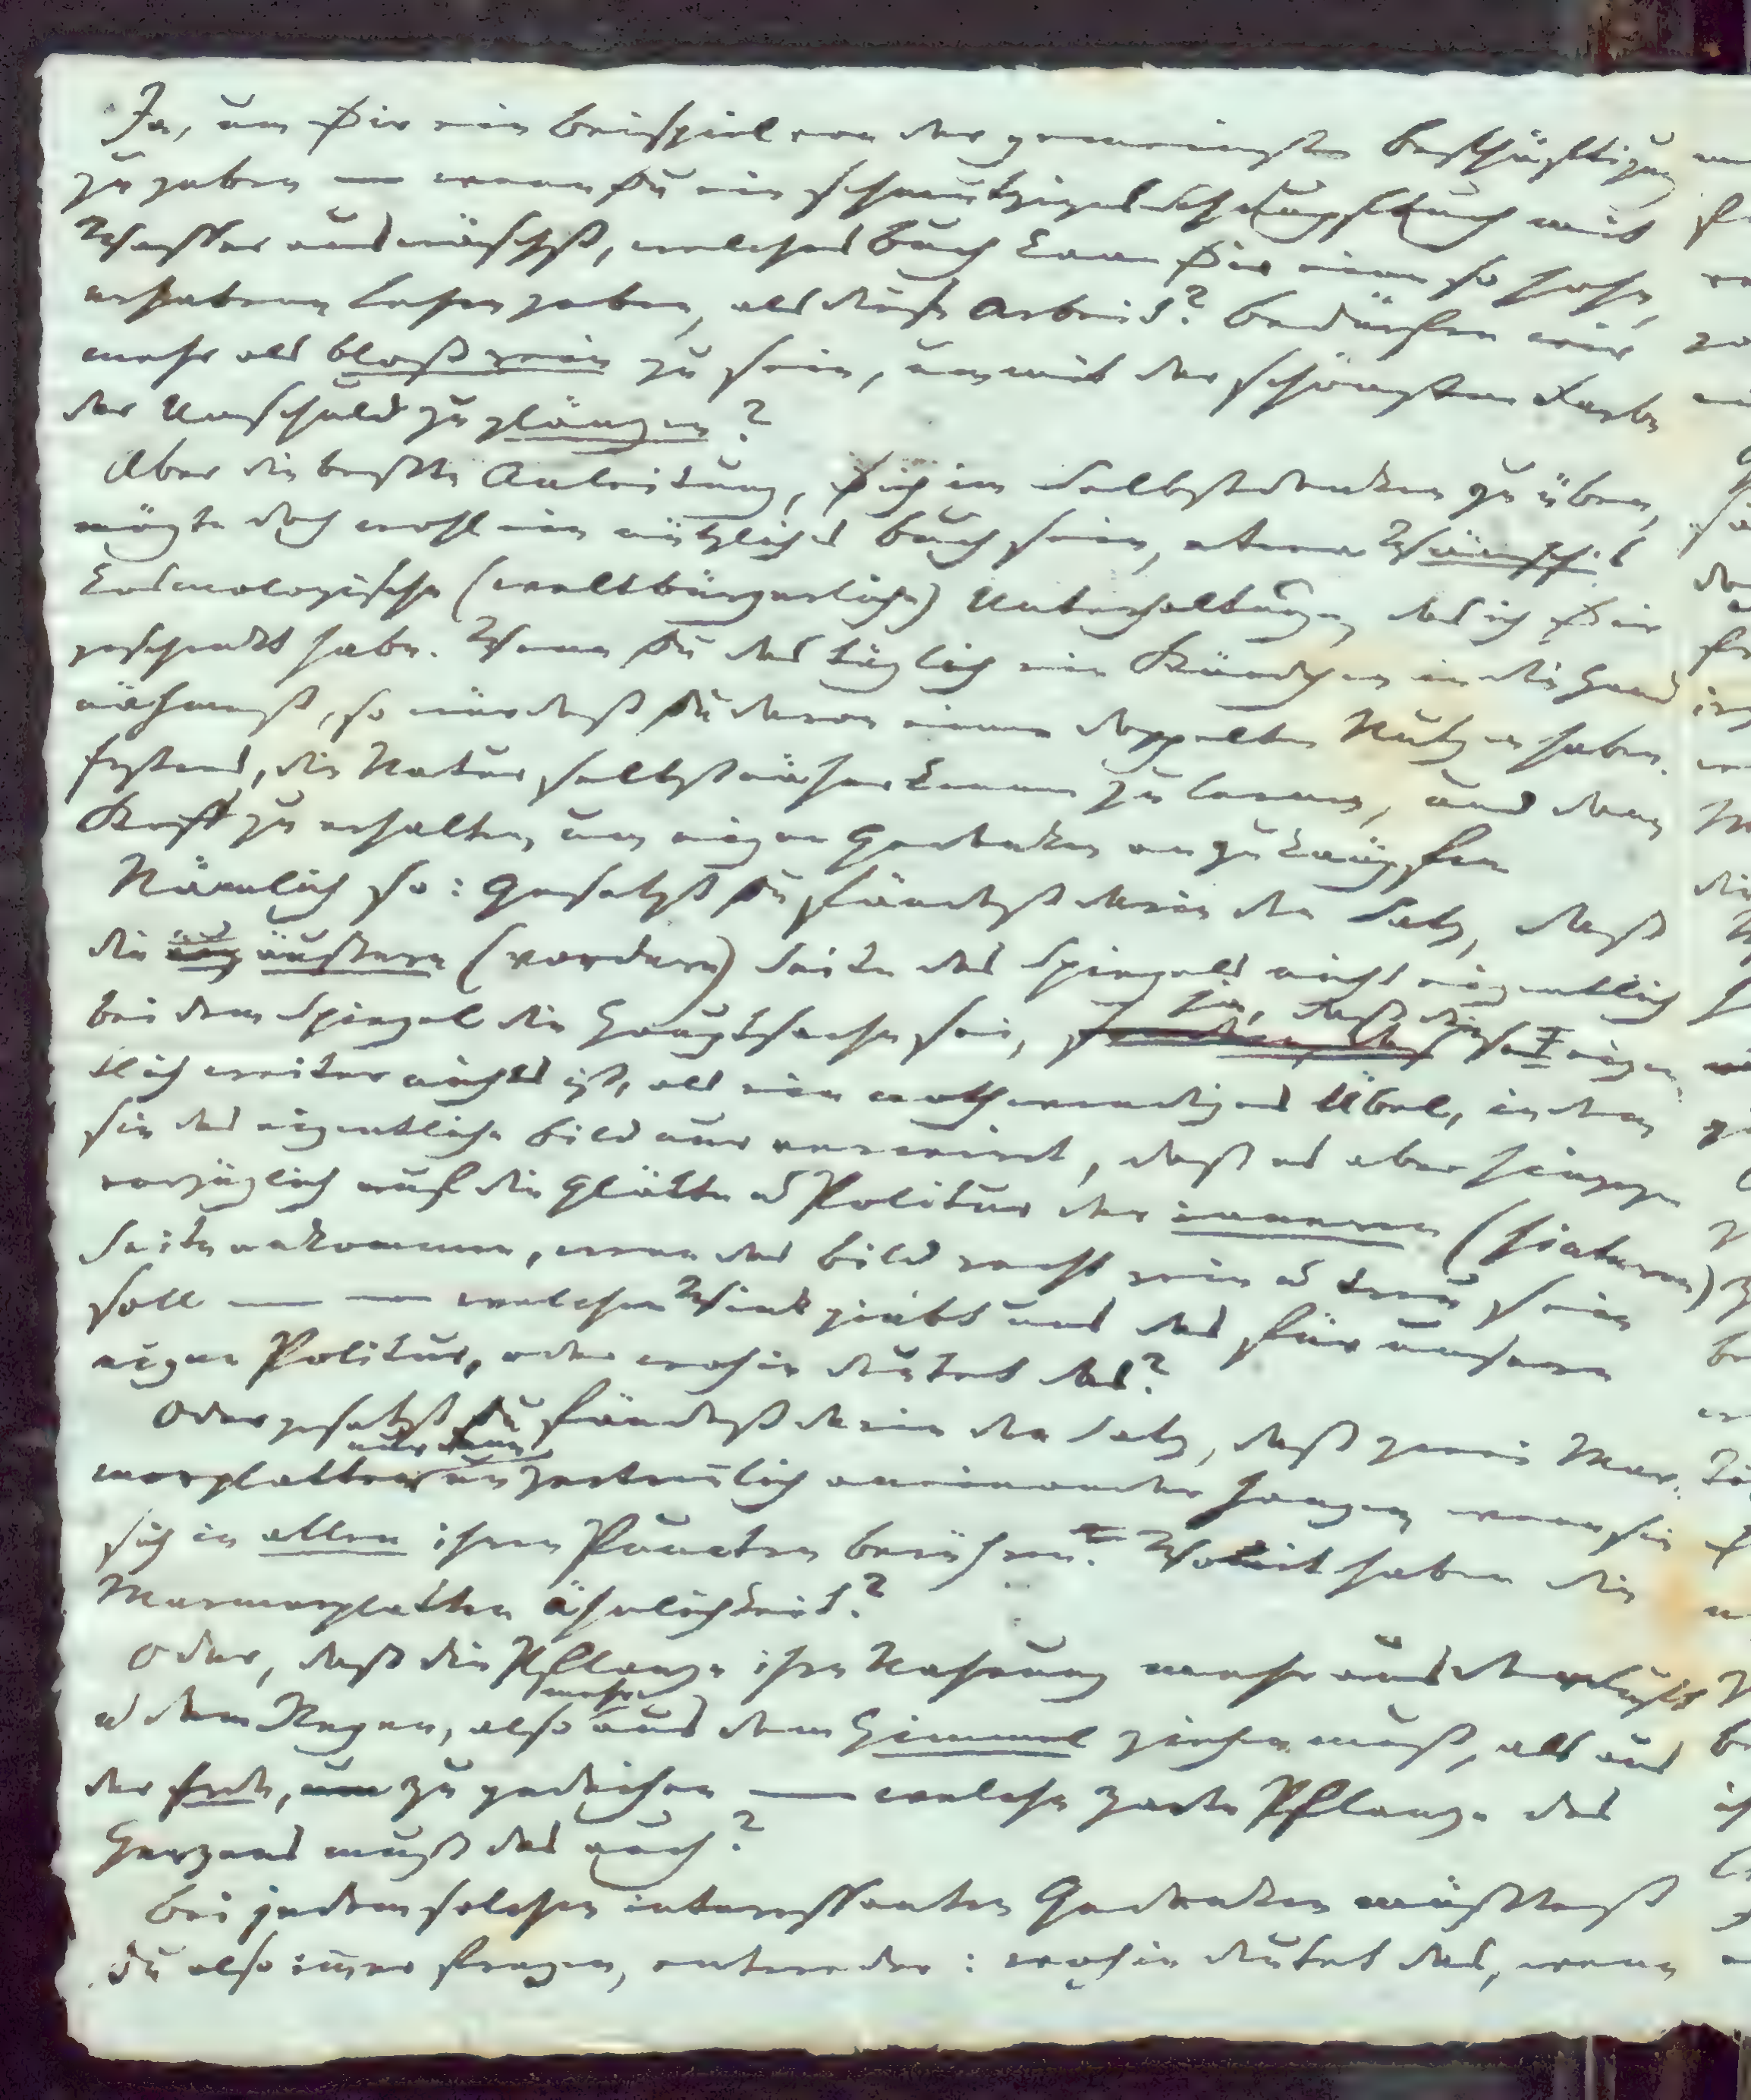 Ja, um Dir ein Beispiel von der gemeinsten Beschäftigung
zu geben — wenn Du ein schmutziges Schnupftuch mit
Wasser auswäschst, welches Buch kann Dir eine so hohe,
erhabene Lehre geben, als diese Arbeit? Bedürfen wir
mehr als bloß rein zu sein, um mit der schönsten Farbe
der Unschuld zu glänzen?
Aber die beste Anleitung, Dich im Selbstdenken zu üben,
mögte doch wohl ein nützliches Buch sein, etwa Wünsch's
kosmologische (weltbürgerliche) Unterhaltungen, das ich Dir
geschenkt habe. Wenn Du das täglich ein Stündchen in die Hand
nähmest, so würdest Du davon einen doppelten Nutzen haben.
Erstens, die Natur selbst näher kennen zu lernen, und dann
Stoff zu erhalten, um eigne Gedanken anzuknüpfen
Nämlich so: Gesetzt Du fändest darin den Satz, daß
die äußere (vordere) Seite des Spiegels nicht eigentlich
bei dem Spiegel die Hauptsache sei, ja, daß diese eigen
tlich weiter nichts ist, als ein nothwendiges Übel, indem
sie das eigentliche Bild nur verwirrt, daß es aber hingegen
vorzüglich auf die Glätte u Politur der inneren (hinteren)
Seite ankomme, wenn das Bild recht rein u treu sein
soll — — welchen Wink giebt uns das für unsere
eigne Politur, oder wohin deutet das?
Oder gesetzt Du fändest darin den Satz, daß zwei Mar-
morplatten nur dann unzertrennlich aneinander hangen, wenn sie
sich in allen ihren Puncten berühren. Womit haben die
Marmorplatten Ähnlichkeit?
Oder, daß die Pflanze ihre Nahrung mehr aus der Luft
u dem Regen, also mehr aus dem Himmel ziehen muß, als aus
der Erde, um zu gedeihen — welche zarte Pflanze des
Herzens muß das auch?
Bei jedem solchen interessanten Gedanken müßtest
Du also immer fragen, entweder: wohin deutet das, wenn